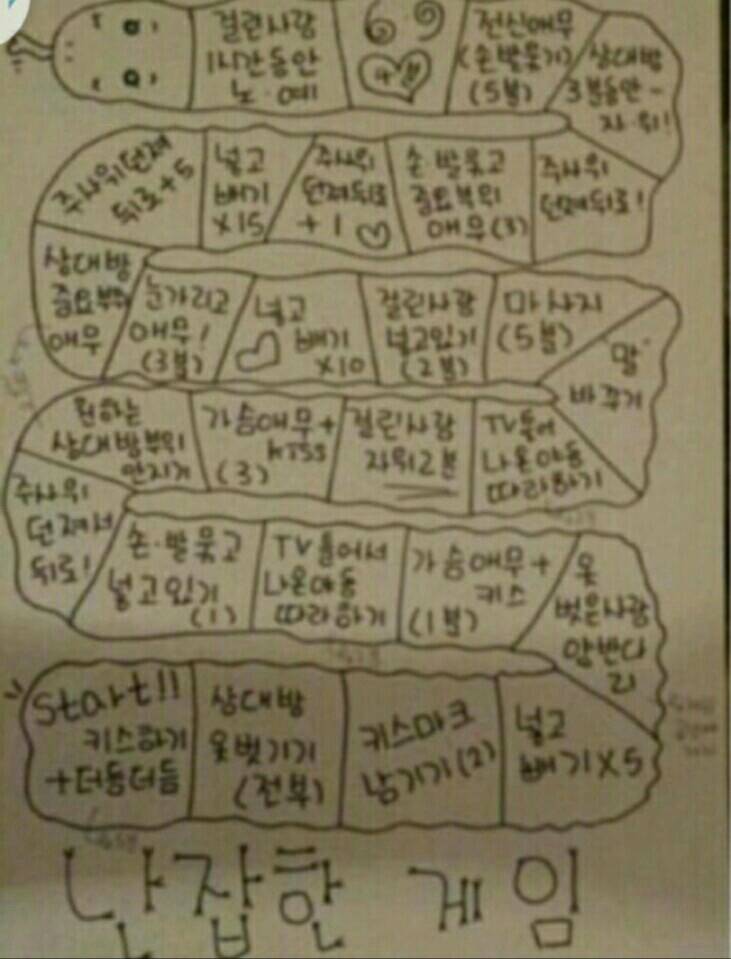 start!!
키스하기
+더듬더듬
상대방
옷벗기기
(전부)
키스마크
남기기(2)
넣고
빼기X5
옷
벗은사람
앞반다
리
가슴애무+
키스
(1분)
TV틀어서
나온야동
따라하기
손·발묶고
넣고있기
(1)
주사위
던져서
뒤로!
원하는
상대방부위
만지기
가슴애무+
kiss
(3)
걸린사람
자위2분
TV틀어
나온야동
따라하기
"말"
바꾸기
마사지
(5분)
걸린사람
넣고있기
(2분)
넣고
빼기
X10
눈가리고
애무!
(3분)
상대방
중요부위
애무
주사위던져
뒤로+5
넣고
빼기
X15
주사위
던져뒤로
+1
손·발묶고
중요부위
애무(3)
주사위
던져뒤로!
상대방
3분동안-
자·위!
전신애무
(손발묶기)
(5분)
6·9
걸린사람
1시간동안
노·예
난잡한 게임